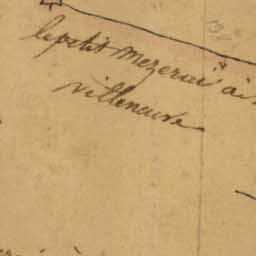 le petit Mezerai à
villeneuve